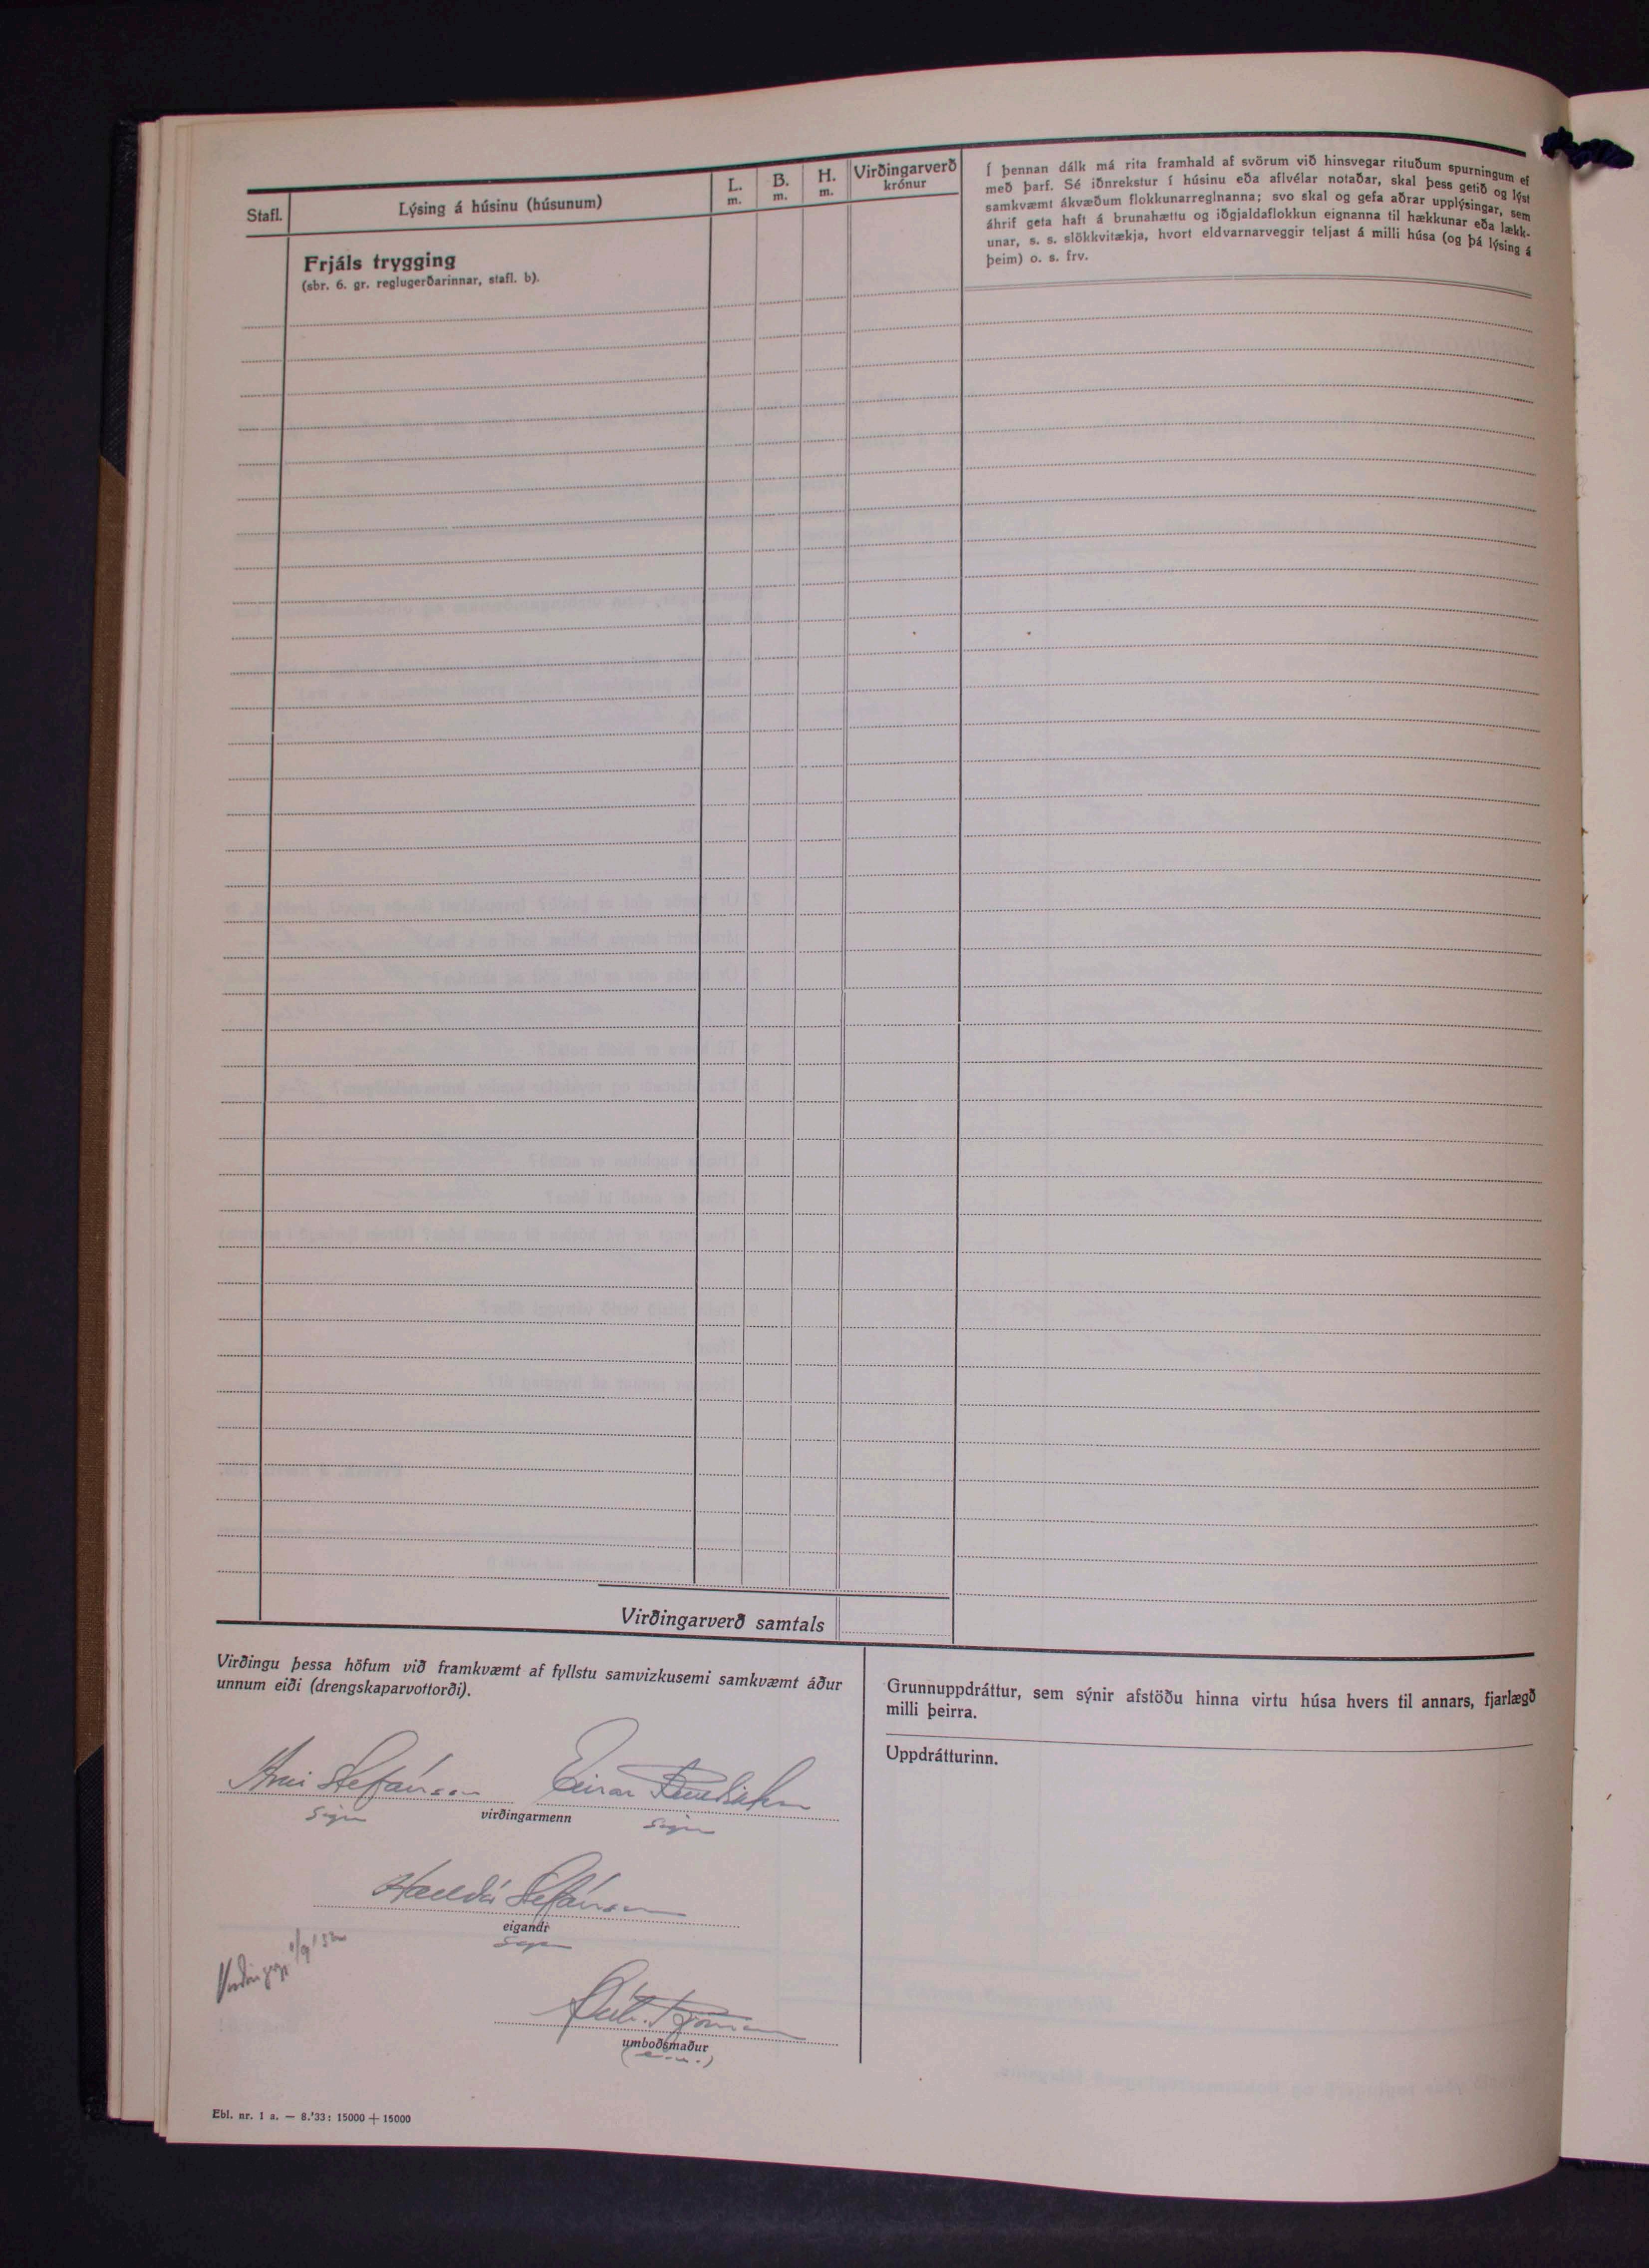 Stafl.
Lýsing á húsinu (húsunum)
L.
m.
B.
m.
H.
m.
Virðingarverð
krónur
Frjáls trygging
(sbr. 6. gr. reglugerðarinnar, stafl. b).
Í þennan dálk má rita framhald af svörum við hinsvegar rituðum spurningum ef
með þarf. Sé iðnrekstur í húsinu eða aflvélar notaðar, skal þess getið og lýst
samkvæmt ákvæðum flokkunarreglnanna; svo skal og gefa aðrar upplýsingar, sem
áhrif geta haft á brunahættu og iðgjaldaflokkun eignanna til hækkunar eða lækk-
unar, s. s. slökkvitækja, hvort eldvarnarveggir teljast á milli húsa (og þá lýsing á
þeim) o. s. frv.
Virðingarverð samtals
Virðingu þessa höfum við framkvæmt af fyllstu samvizkusemi samkvæmt áður
unnum eiði (drengskaparvottorði).
Árni Stefánsson Einar
sign virðingarmenn sign
Halldór Stefánsson
eigandi
sign
umboðsmaður
Ebl. nr. 1 a. — 8.'33: 15000 + 15000
Grunnuppdráttur, sem sýnir afstöðu hinna virtu húsa hvers til annars, fjarlægð
milli þeirra.
Uppdrátturinn.